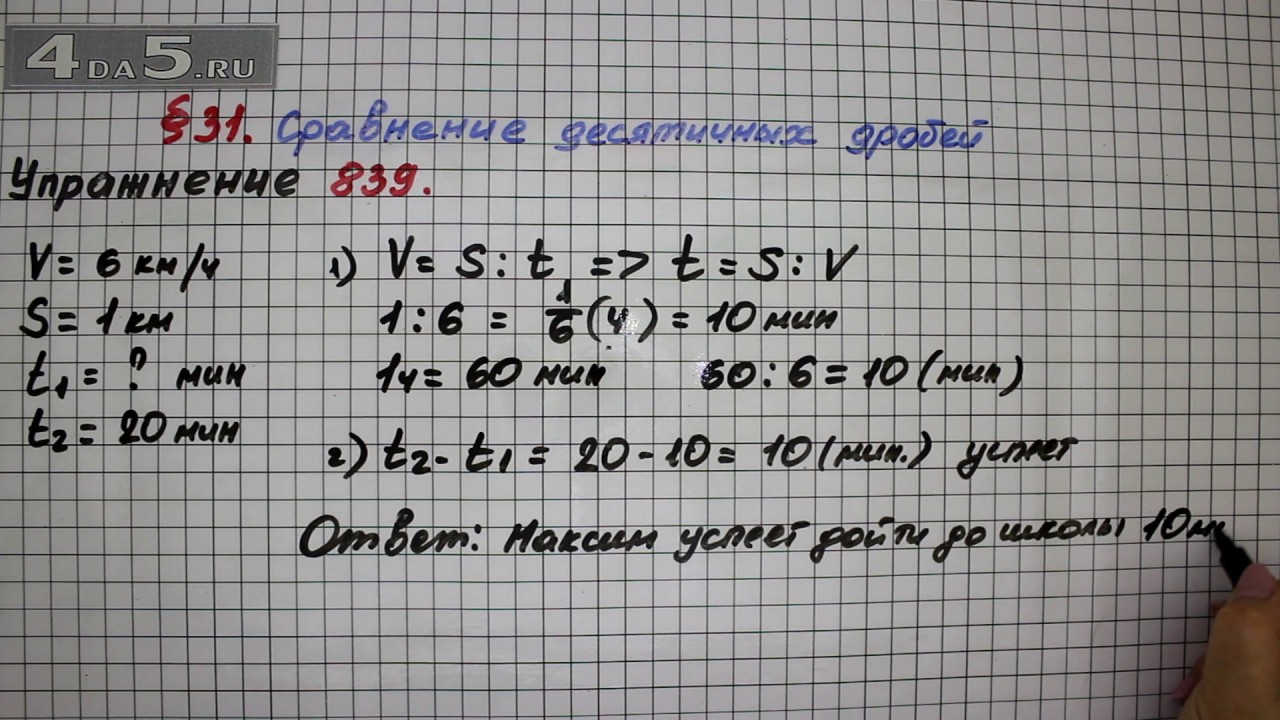 4DA5.RU
§31. Сравнение десятичных дробей
Упражнение 839.
V = 6 км/ч
S = 1 км
t₁ = ? мин
t₂ = 20 мин
1) V = S : t => t = S : V
1 : 6 = 1/6 (ч) = 10 мин
1ч = 60 мин 60 : 6 = 10 (мин)
2) t₂ - t₁ = 20 - 10 = 10 (мин.) успеет
Ответ: Максим успеет дойти до школы 10м